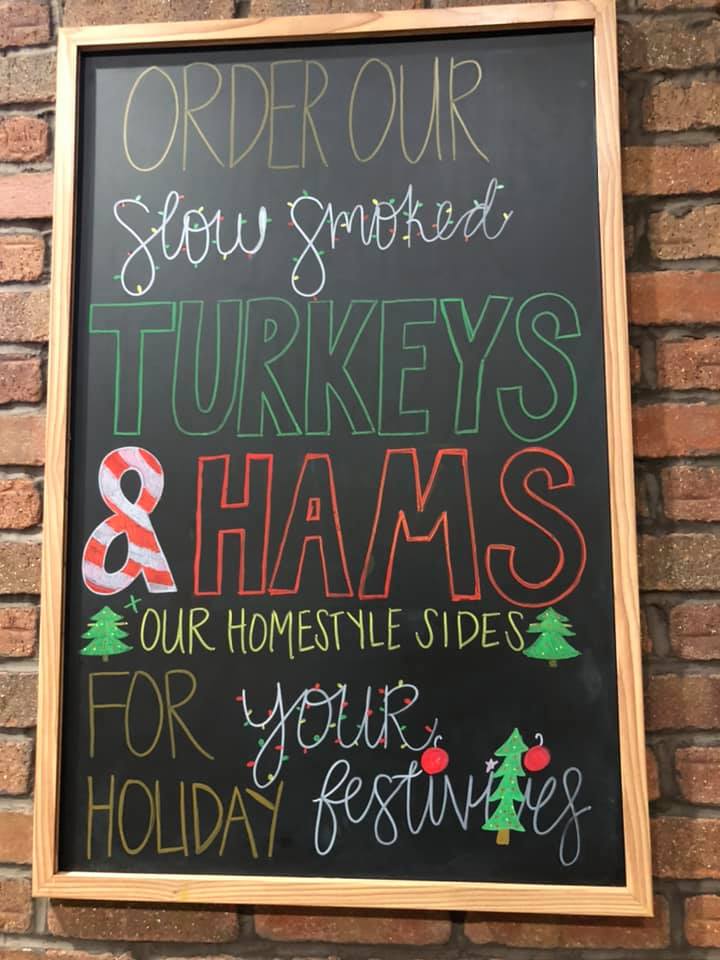 ORDER OUR
Slow Smoked
TURKEYS
& HAMS
+ OUR HOMESTYLE SIDES
FOR your
HOLIDAY festivities